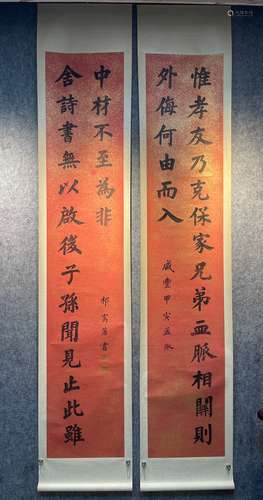 惟孝友乃克保家兄弟血脈相關則
外侮何由而入
咸豐甲寅孟秋
舍詩書無以啟後子孫聞見止此雖
中材不至為非